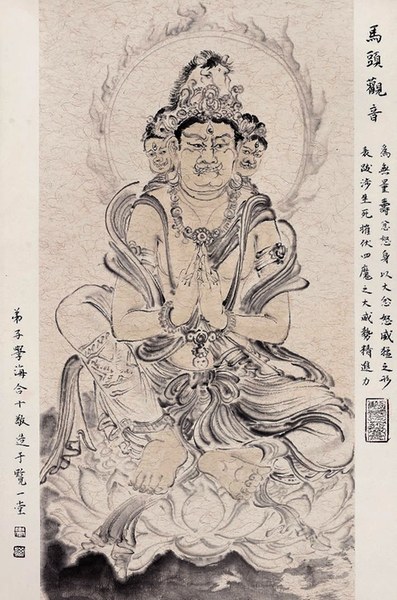 馬頭觀音
為無量壽忿怒身以大忿怒威猛之形
表跋涉生死摧伏四魔之大威勢精進力
弟子海合十敬造于覽一堂